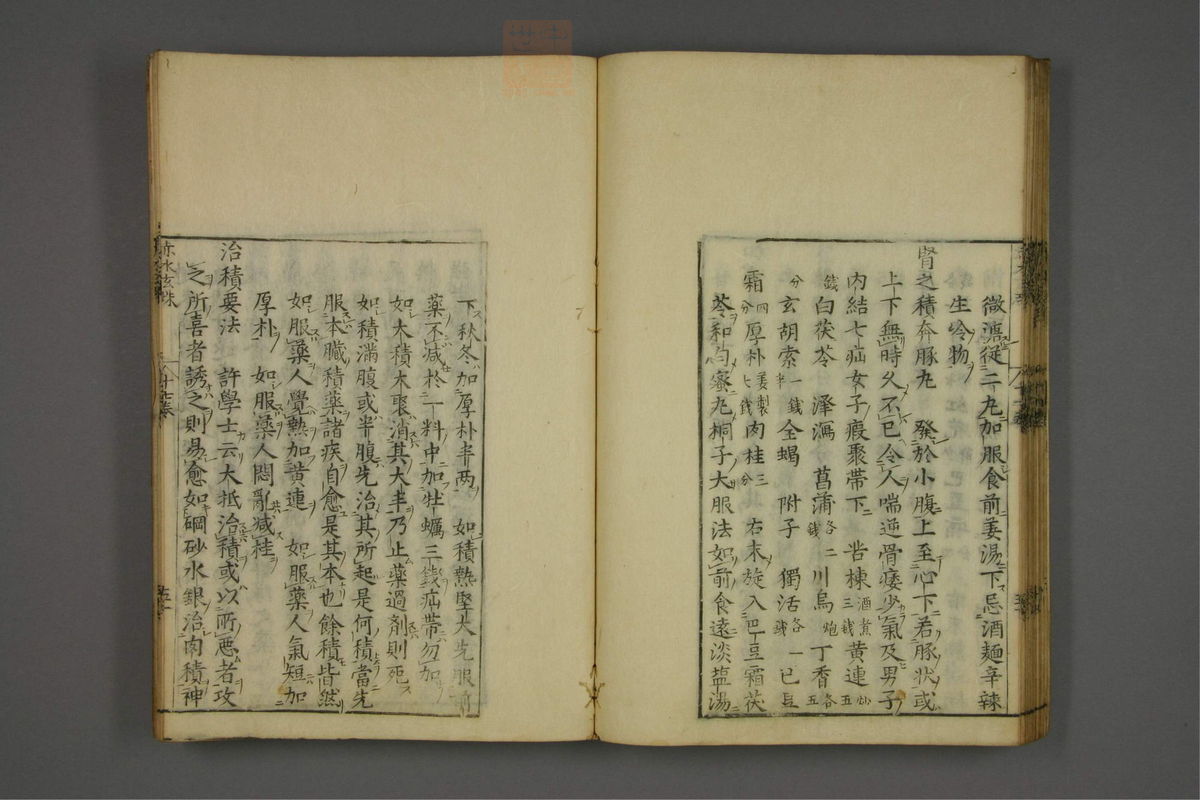 微溏徒二丸加服食前姜湯下忌酒麵辛辣
生冷物
腎之積奔豚丸　發於小腹上至心下若豚狀或
上下無時久不已令人喘逆骨痿少氣及男子
内結七疝女子瘕聚帶下　苦楝酒煮三錢黄連炒五
錢白茯苓　澤瀉　菖蒲各二錢川烏炮丁香各五
分玄胡索一錢半全蝎　附子　獨活各一錢巴豆
霜四分厚朴姜製七錢肉桂三分　右末旋入巴豆霜茯
苓和匀蜜丸桐子大服法如前食遠淡鹽湯
下秋冬加厚朴半两　如積熱堅大先服前
藥不減於一料中加牡蠣三錢疝帶勿加
如大積大聚消其大半乃止藥過劑則死
如積滿腹或半腹先治其所起是何積當先
服本臟積藥諸疾自愈是其本也餘積皆然
如服藥人覺熱加黄連　如服藥人氣短加
厚朴　如服藥人悶亂減桂
治積要法　許學士云大抵治積或以所惡者攻
之所喜者誘之則易愈如硇砂水銀治肉積神
赤水玄珠
十九卷
五十一